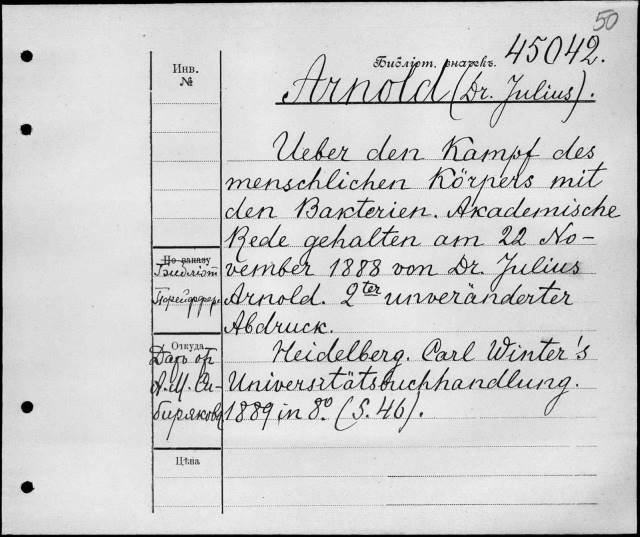 50
Библіот. значекъ. 45042.
Инв.
№
Arnold (Dr. Julius).
Ueber den Kampf des
menschlichen Körpers mit
den Bakterien. Akademische
Rede gehalten am 22 No-
vember 1888 von Dr. Julius
Arnold. 2ter unveränderter
Abdruck.
Heidelberg. Carl Winter's
Universitätsbuchhandlung.
1889 in 8º. (S. 46).
По заказу
Библіот
Откуда
Даръ
А. М. Си-
бирякова
Цѣна